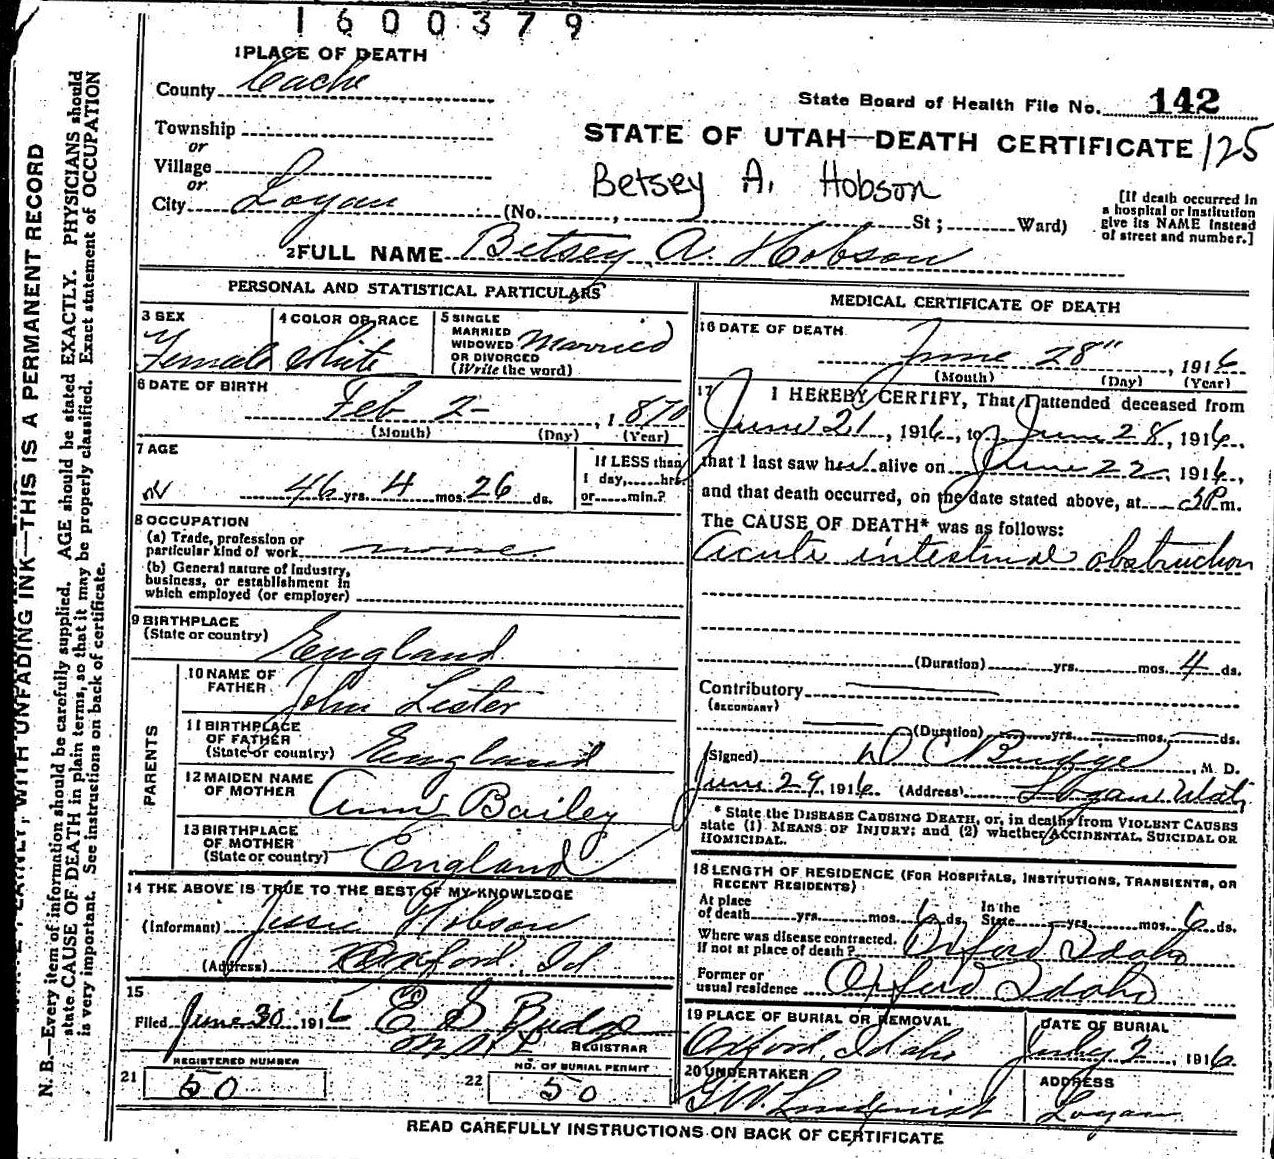 1600379
1 PLACE OF DEATH
County Cache
State Board of Health File No. 142
Township
or
Village
or
City Logan
STATE OF UTAH—DEATH CERTIFICATE 125
Betsey A. Hobson
(No. , St; Ward)
[If death occurred in a hospital or institution give its NAME instead of street and number.]
2 FULL NAME Betsey A. Hobson
PERSONAL AND STATISTICAL PARTICULARS
3 SEX
Female
4 COLOR OR RACE
White
5 SINGLE
MARRIED
WIDOWED
OR DIVORCED
(Write the word)
Married
6 DATE OF BIRTH
Feb 2 , 1870
(Month) (Day) (Year)
7 AGE
46 yrs. 4 mos. 26 ds.
If LESS than
1 day, hrs.
or min.?
8 OCCUPATION
(a) Trade, profession or
particular kind of work none
(b) General nature of industry,
business, or establishment in
which employed (or employer)
9 BIRTHPLACE
(State or country) England
PARENTS
10 NAME OF
FATHER John Lester
11 BIRTHPLACE
OF FATHER
(State or country) England
12 MAIDEN NAME
OF MOTHER Ann Bailey
13 BIRTHPLACE
OF MOTHER
(State or country) England
14 THE ABOVE IS TRUE TO THE BEST OF MY KNOWLEDGE
(Informant) Jessie Hobson
(Address) Oxford, Id
15
Filed June 30 1916 E S Budge
REGISTRAR
REGISTERED NUMBER
21 50
NO. OF BURIAL PERMIT
22 50
MEDICAL CERTIFICATE OF DEATH
16 DATE OF DEATH
June 28" , 1916
(Month) (Day) (Year)
17 I HEREBY CERTIFY, That I attended deceased from
June 21 , 1916, to June 28, 1916.
that I last saw her alive on June 22, 1916,
and that death occurred, on the date stated above, at 3 P.m.
The CAUSE OF DEATH* was as follows:
Acute intestinal obstruction
(Duration) yrs. mos. 4 ds.
Contributory
(SECONDARY)
(Duration) yrs. mos. ds.
(Signed) D C Budge, M. D.
June 29, 1916. (Address) Logan Utah
* State the DISEASE CAUSING DEATH, or, in deaths from VIOLENT CAUSES
state (1) MEANS OF INJURY; and (2) whether ACCIDENTAL, SUICIDAL OR
HOMICIDAL.
18 LENGTH OF RESIDENCE (FOR HOSPITALS, INSTITUTIONS, TRANSIENTS, OR
RECENT RESIDENTS)
At place
of death yrs. mos. 6 ds.
In the
State yrs. mos. 6 ds.
Where was disease contracted.
If not at place of death? Oxford Idaho
Former or
usual residence Oxford Idaho
19 PLACE OF BURIAL OR REMOVAL
Oxford, Idaho
DATE OF BURIAL
July 2, 1916.
20 UNDERTAKER
G W. Lindquist
ADDRESS
Logan
READ CAREFULLY INSTRUCTIONS ON BACK OF CERTIFICATE
WITH UNFADING INK—THIS IS A PERMANENT RECORD
N. B.—Every item of information should be carefully supplied. AGE should be stated EXACTLY. PHYSICIANS should
state CAUSE OF DEATH in plain terms, so that it may be properly classified. Exact statement of OCCUPATION
is very important. See instructions on back of certificate.